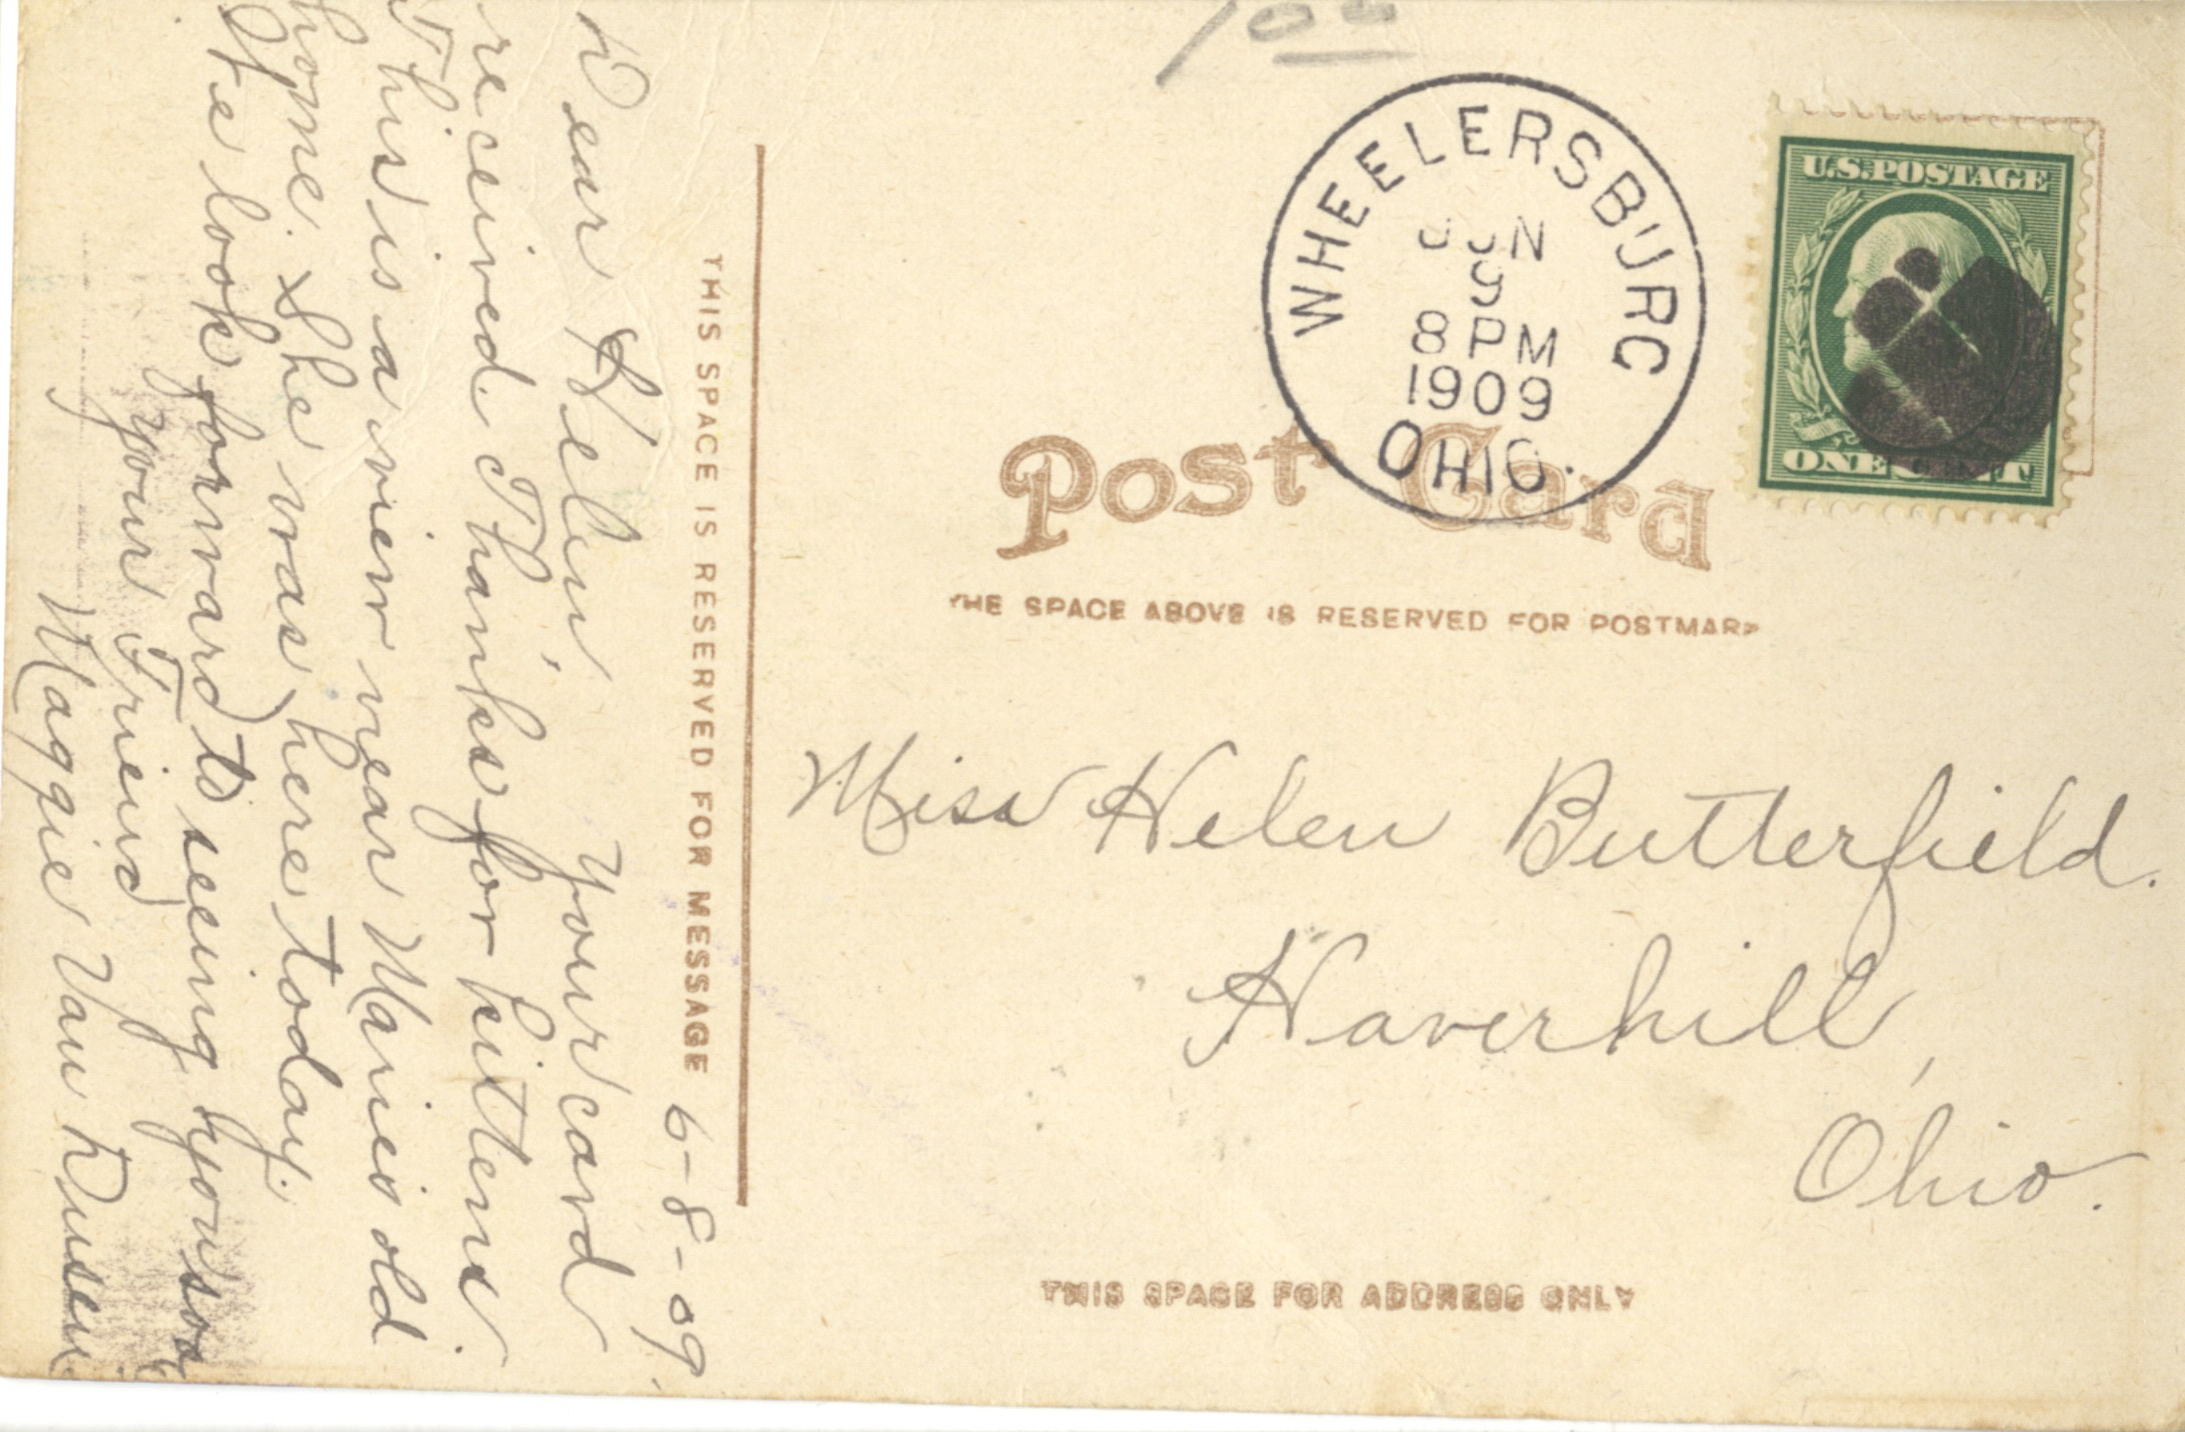 100
WHEELERSBURG
JUN
9
8 PM
1909
OHIO.
U.S. POSTAGE
ONE CENT
Post Card
THE SPACE ABOVE IS RESERVED FOR POSTMARK
Miss Helen Butterfield.
Haverhill,
Ohio.
THIS SPACE FOR ADDRESS ONLY
THIS SPACE IS RESERVED FOR MESSAGE
6-8-09.
Dear Helen, Your card
received Thanks for kittens.
This is a view near Maries old
home. She was here today.
We look forward to seeing you soon
Your Friend
Maggie Van